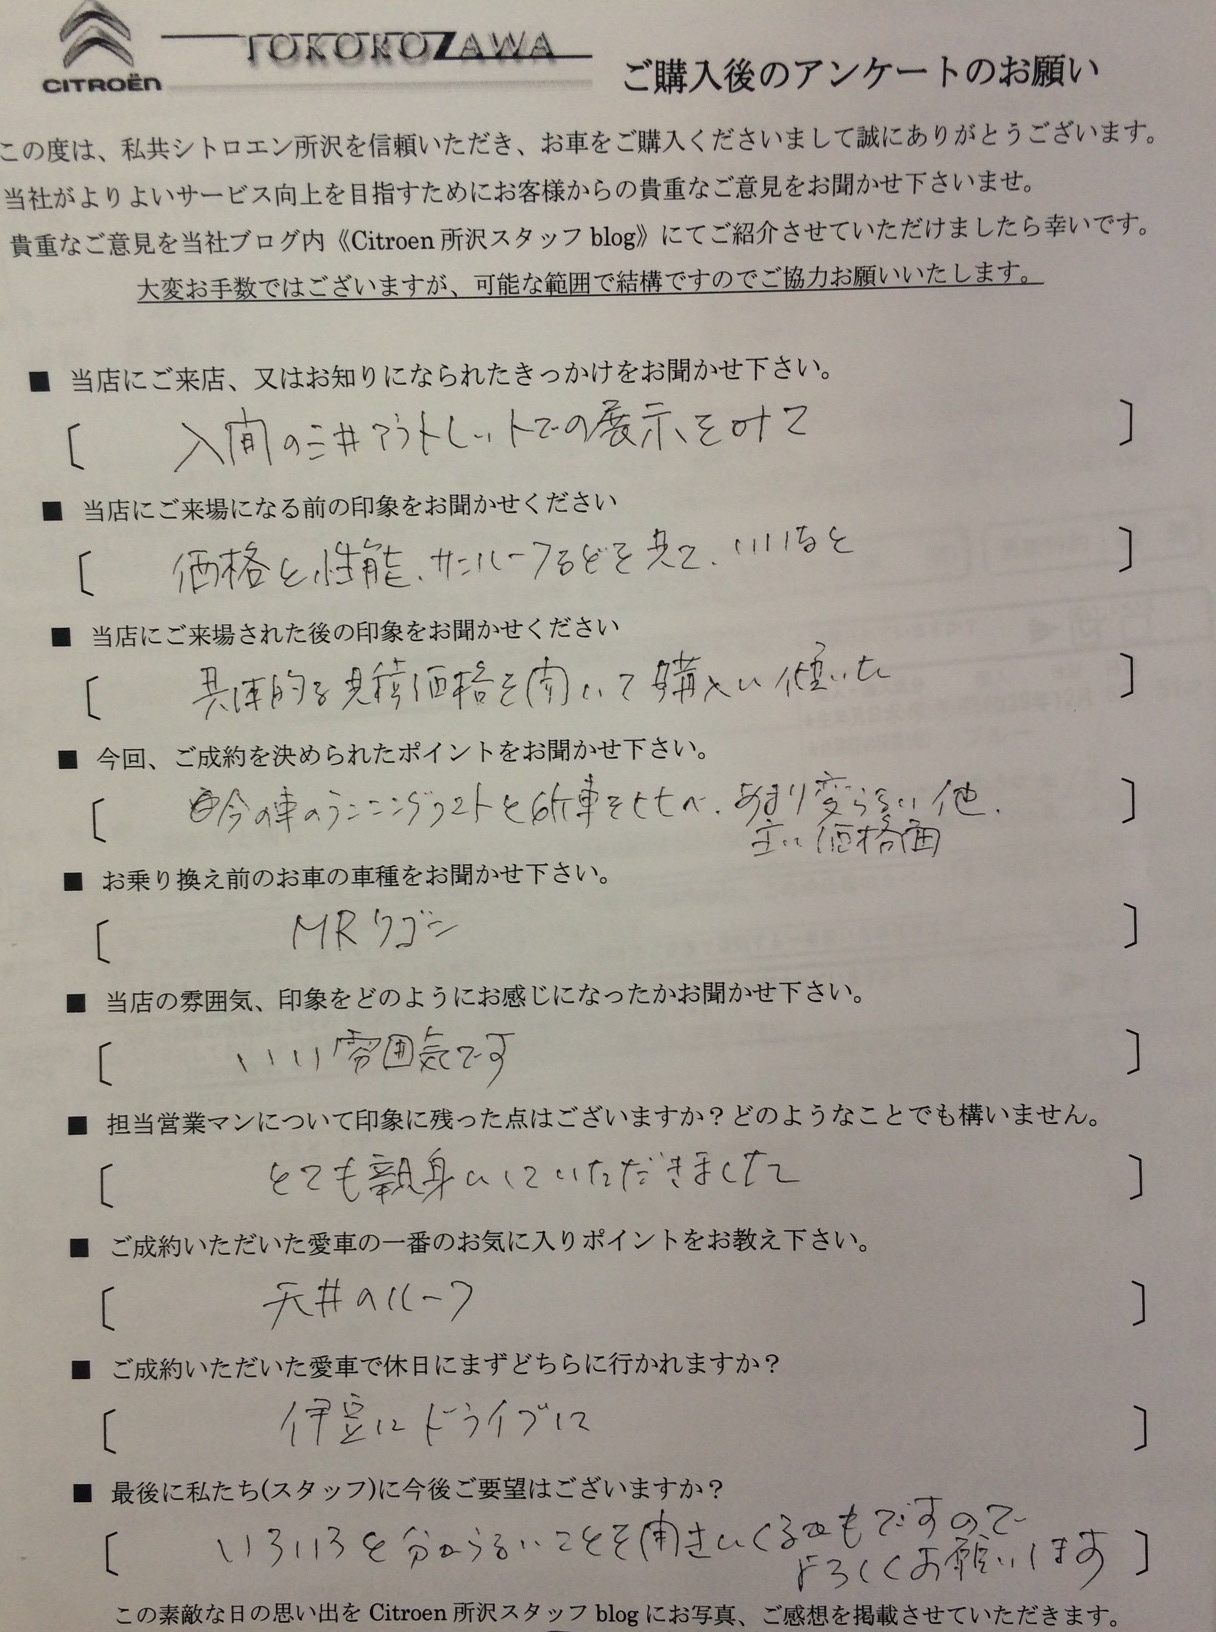 CITROËN
TOKOROZAWA
ご購入後のアンケートのお願い
この度は、私共シトロエン所沢を信頼いただき、お車をご購入くださいまして誠にありがとうございます。
当社がよりよいサービス向上を目指すためにお客様からの貴重なご意見をお聞かせ下さいませ。
貴重なご意見を当社ブログ内《Citroen 所沢スタッフ blog》にてご紹介させていただけましたら幸いです。
大変お手数ではございますが、可能な範囲で結構ですのでご協力お願いいたします。
■ 当店にご来店、又はお知りになられたきっかけをお聞かせ下さい。
[ 入間の三井アウトレットでの展示を みて ]
■ 当店にご来場になる前の印象をお聞かせください
[ 価格と性能、サンルーフなどを見て、いいなと ]
■ 当店にご来場された後の印象をお聞かせください
[ 具体的な見積価格を聞いて購入に傾いた ]
■ 今回、ご成約を決められたポイントをお聞かせ下さい。
[ 今の車のランニングコストと新車をくらべ、あまり変らない他、
主に価格面 ]
■ お乗り換え前のお車の車種をお聞かせ下さい。
[ MRワゴン ]
■ 当店の雰囲気、印象をどのようにお感じになったかお聞かせ下さい。
[ いい雰囲気です ]
■ 担当営業マンについて印象に残った点はございますか？どのようなことでも構いません。
[ とても親身にしていただきました ]
■ ご成約いただいた愛車の一番のお気に入りポイントをお教え下さい。
[ 天井のルーフ ]
■ ご成約いただいた愛車で休日にまずどちらに行かれますか？
[ 伊豆にドライブに ]
■ 最後に私たち(スタッフ)に今後ご要望はございますか？
[ いろいろと分からないことを聞きにくるかもですので
よろしくお願いします ]
この素敵な日の思い出を Citroen 所沢スタッフ blog にお写真、ご感想を掲載させていただきます。